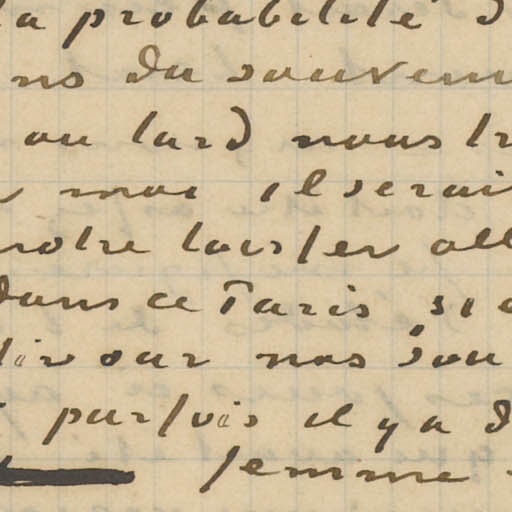 la probabilité d
ns du souveni
ou tard nous tr
moi il serai
notre laisser all
dans ce Paris si
sur nos sou
parfois il y a d
femme